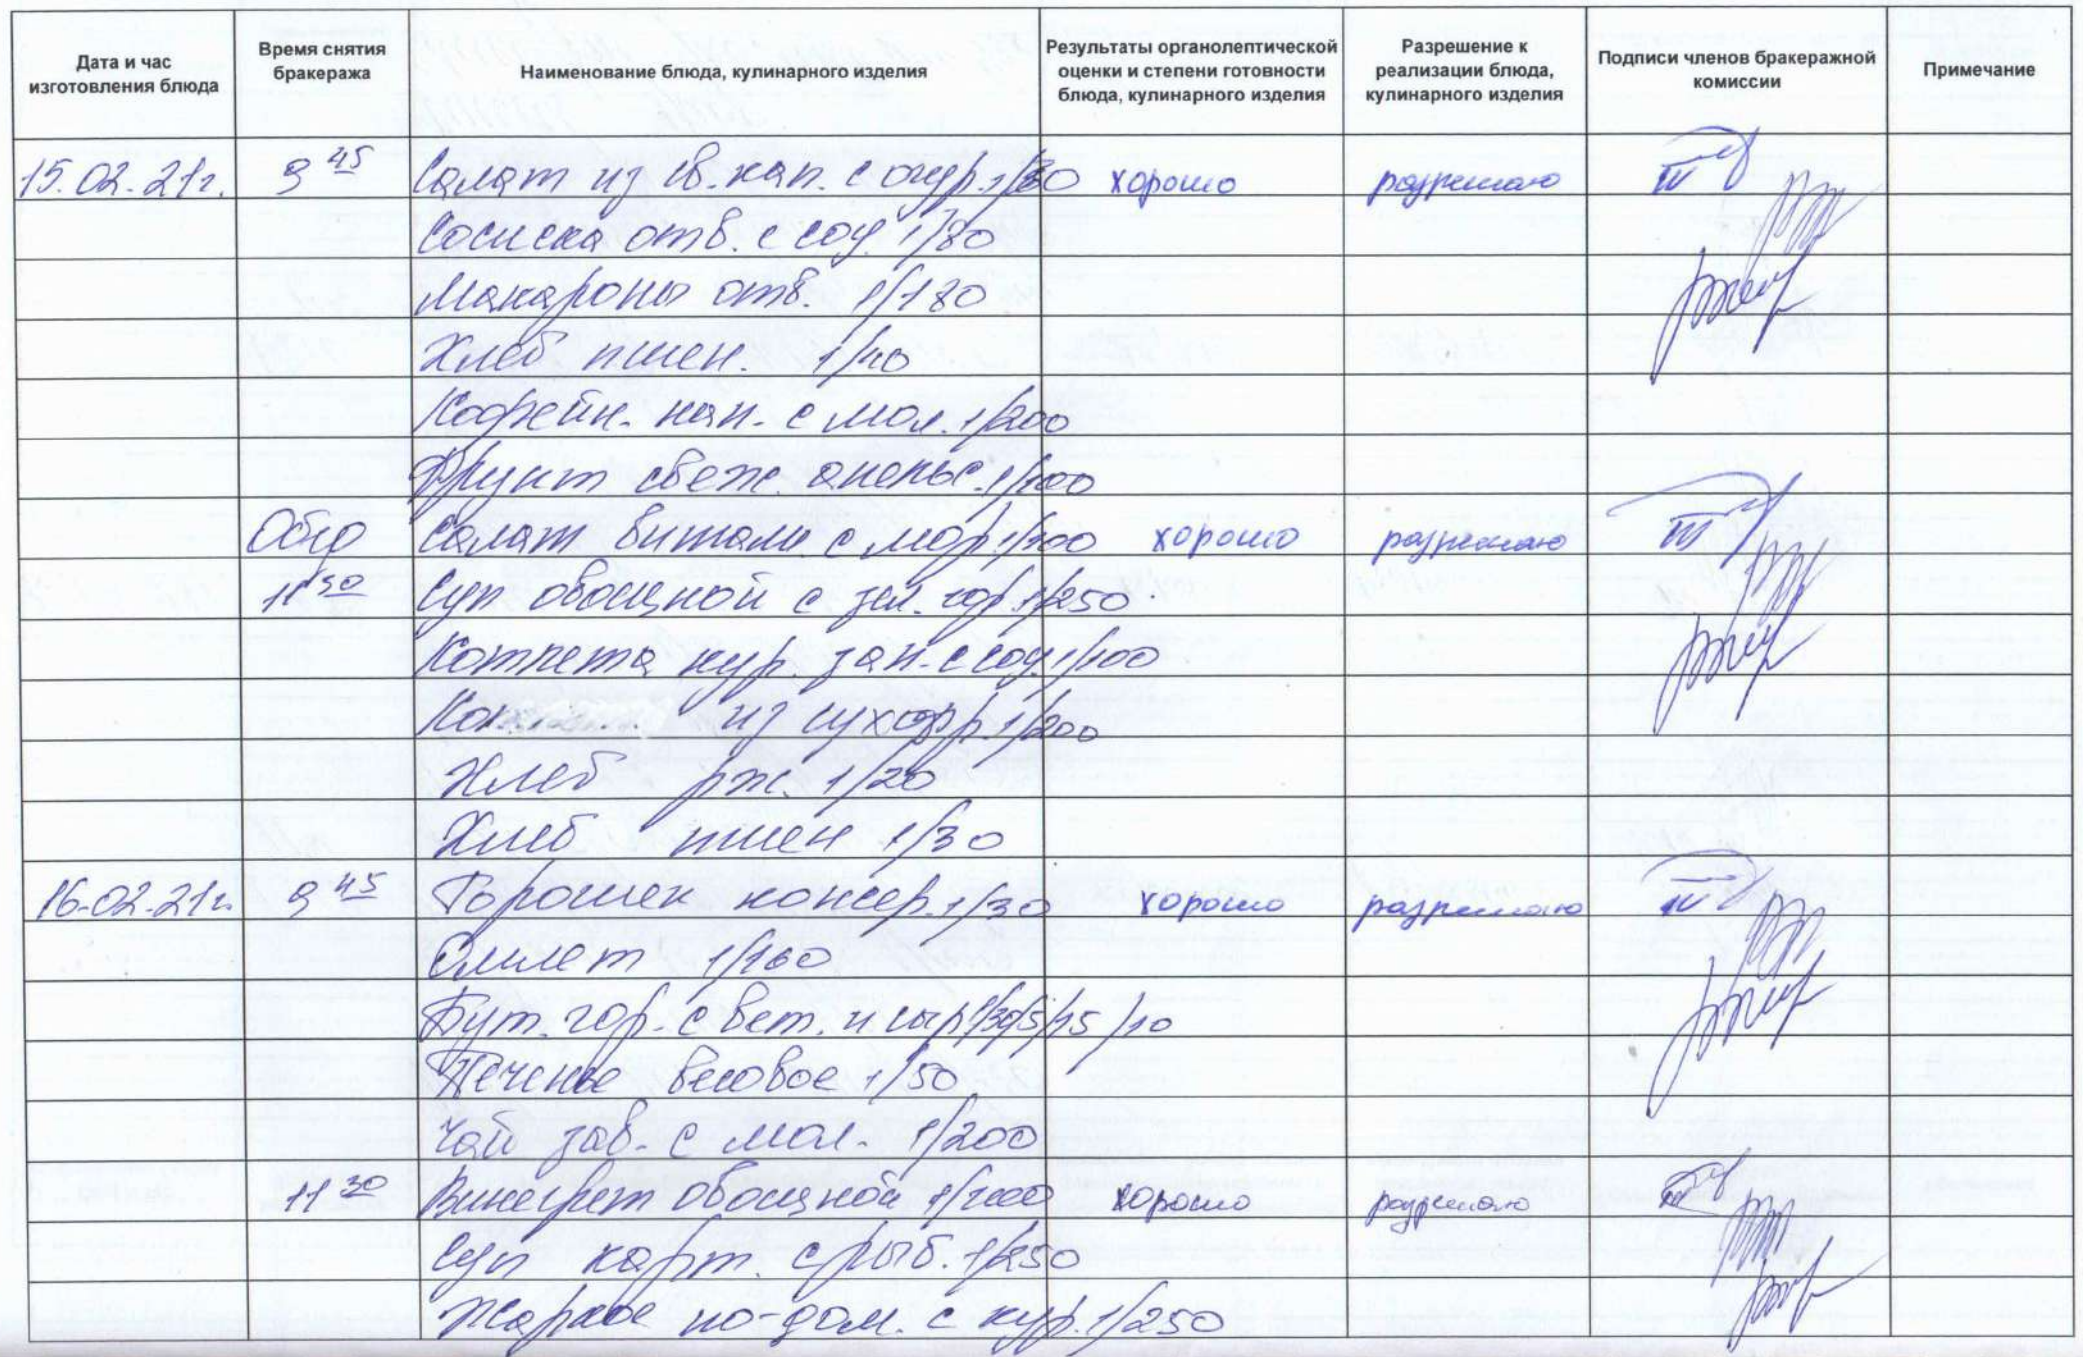 Дата и час изготовления блюда
Время снятия бракеража
Наименование блюда, кулинарного изделия
Результаты органолептической оценки и степени готовности блюда, кулинарного изделия
Разрешение к реализации блюда, кулинарного изделия
Подписи членов бракеражной комиссии
Примечание
15.02.21г. 9 45 Салат из св. кап. с огур. хорошо разрешаю
Сосиска отв. с соу. 1/80
Макароны отв. 1/180
Хлеб пшен. 1/40
Кофейн. нап. с мол. 1/200
Фрукт свеж. апельс. 1/100
Обед Салат витам. с мор. 1/100 хорошо разрешаю
Суп овощной с зел. гор. 1/250
Котлета кур. зап. с соу. 1/100
из сухофр. 1/200
Хлеб рж. 1/20
Хлеб пшен 1/30
16.02.21г. 9 45 Горошек консер. 1/30 хорошо разрешаю
Омлет 1/160
Бут. гор. с вет. и сыр
Печенье весовое 1/50
Чай зав. с мол. 1/200
11 30 Винегрет овощной хорошо разрешаю
Суп карт. с рыб. 1/250
Жаркое по-дом. с кур. 1/250